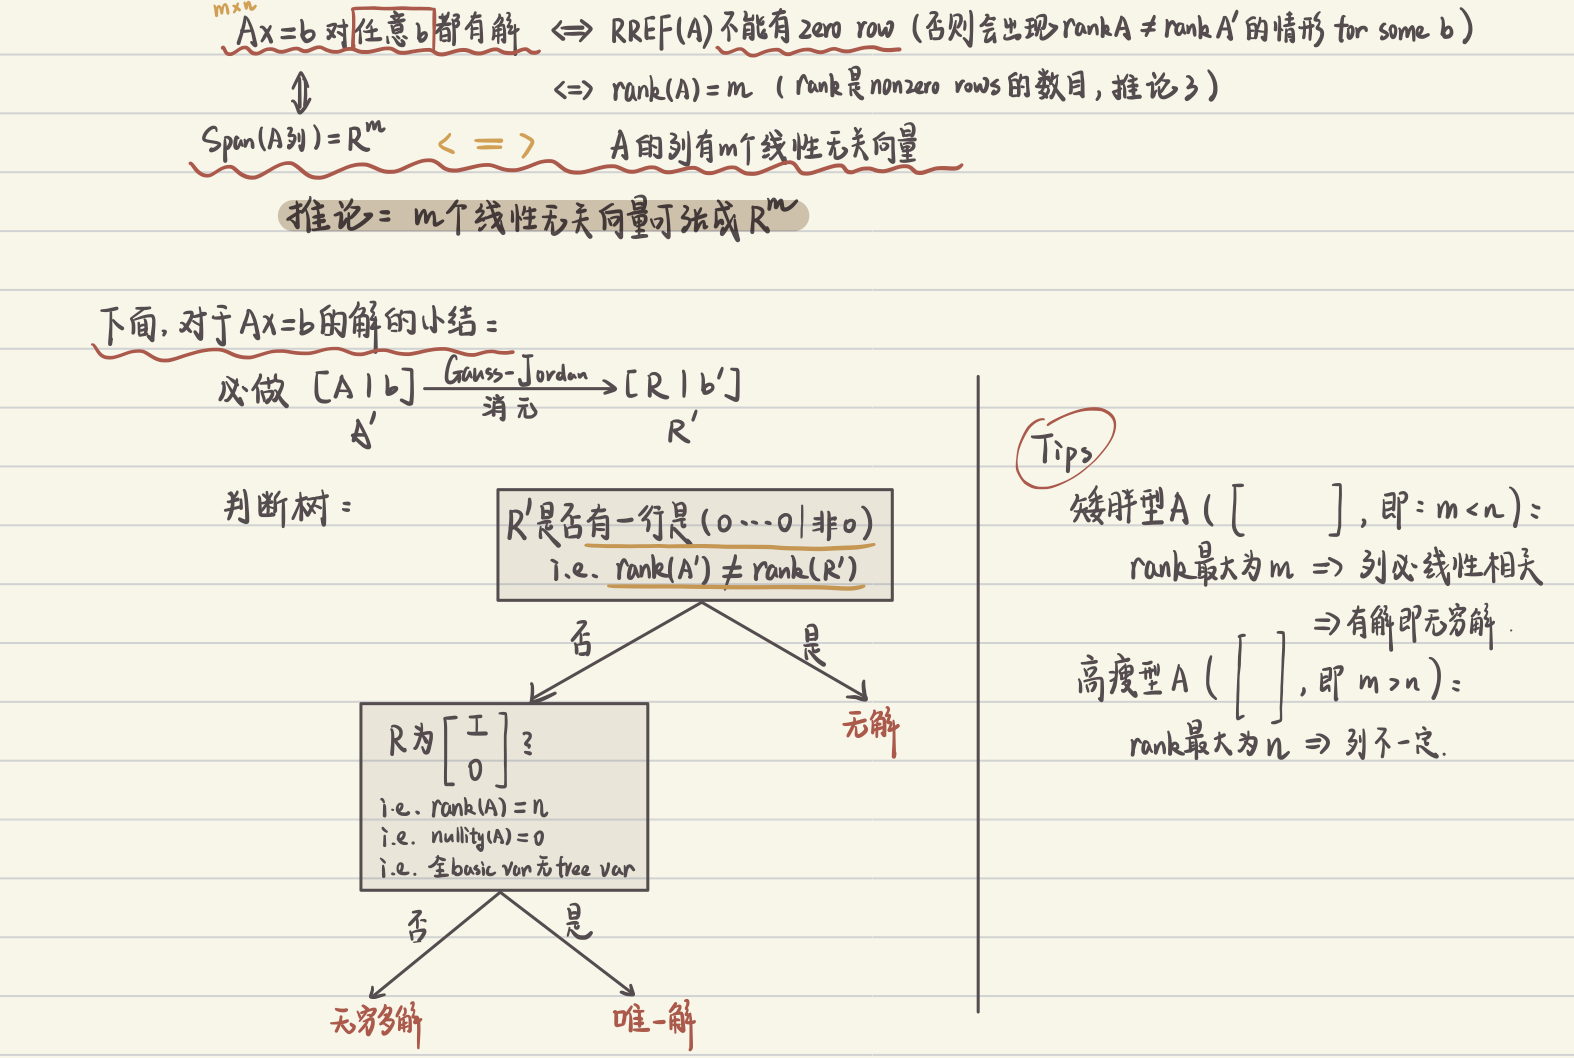 m×n
Ax=b 对任意b都有解 <=> RREF(A) 不能有 zero row (否则会出现 rankA ≠ rankA' 的情形 for some b)
<=> rank(A) = m (rank是nonzero rows的数目, 推论3)
Span(A列) = R^m <=> A的列有m个线性无关向量
推论: m个线性无关向量可张成 R^m
下面, 对于Ax=b的解的小结:
必做 [A | b] Gauss-Jordan 消元 → [R | b']
A' R'
判断树:
R'是否有一行是 (0···0 | 非0)
i.e. rank(A') ≠ rank(R')
否 是
无解
R为 [I 0] ?
i.e. rank(A) = n
i.e. nullity(A) = 0
i.e. 全basic var无free var
否 是
无穷多解 唯一解
Tips
矮胖型A ( [ ] , 即: m < n ):
rank最大为m => 列必线性相关
=> 有解即无穷解.
高瘦型A ( [ ] , 即 m > n ):
rank最大为n => 列不一定.